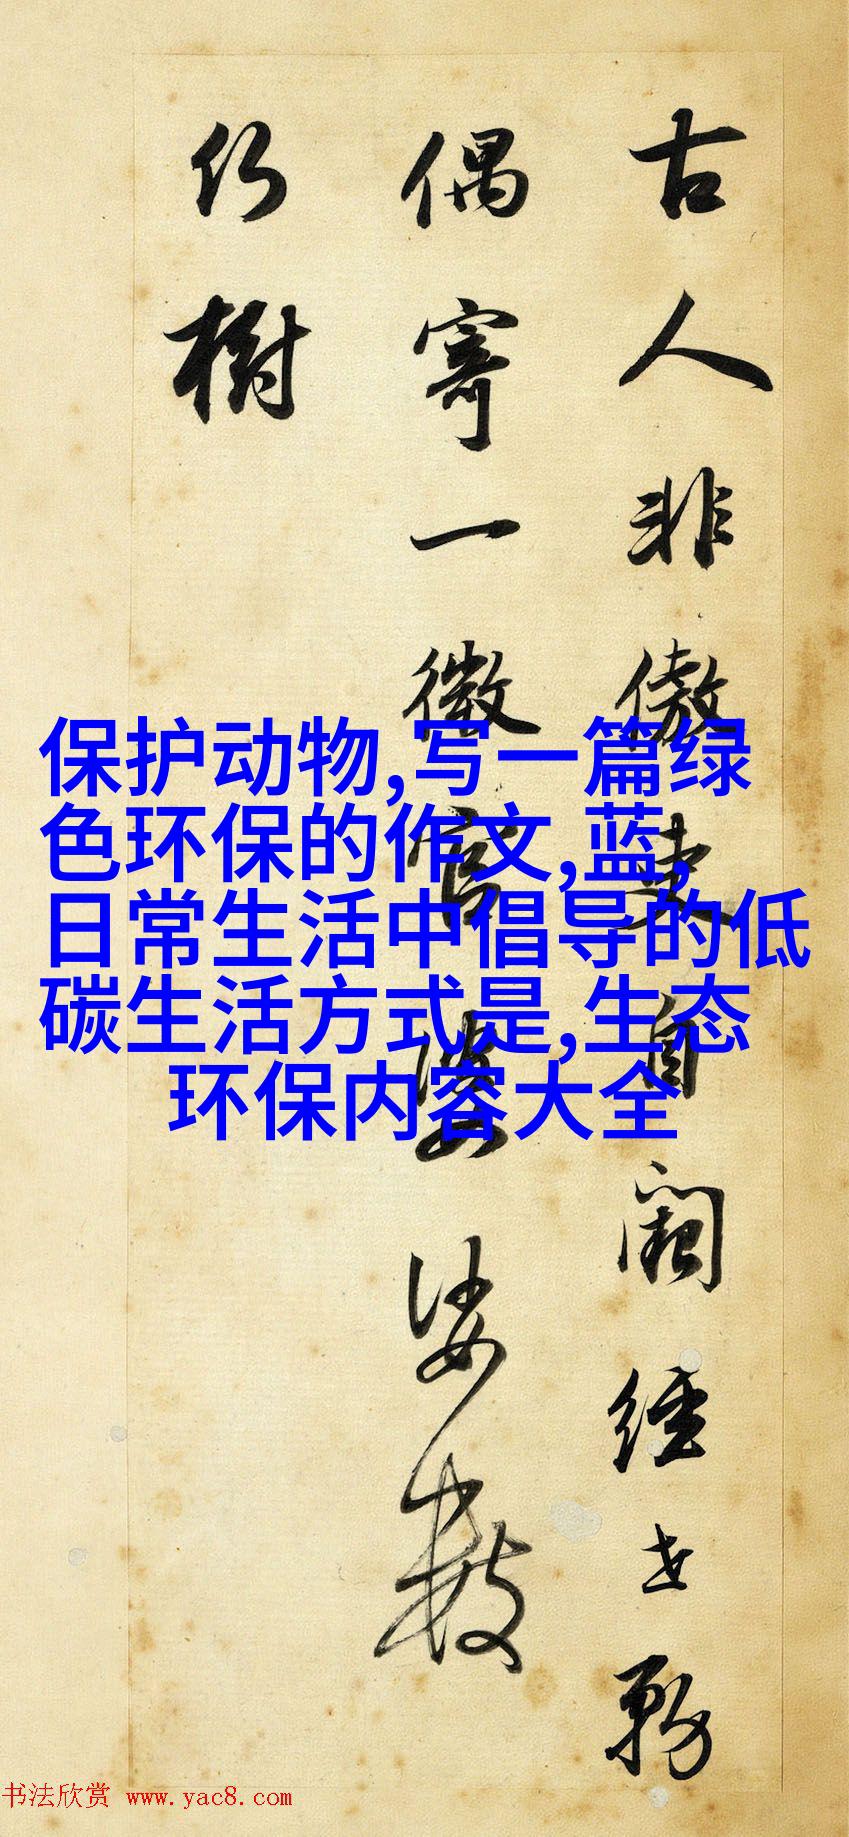 古人非傲吏自阙经世务
偶寄一微官婆娑数
仍树
保护动物,写一篇绿
色环保的作文,蓝,
日常生活中倡导的低
碳生活方式是,生态
环保内容大全
书法欣赏 www.yac8.com